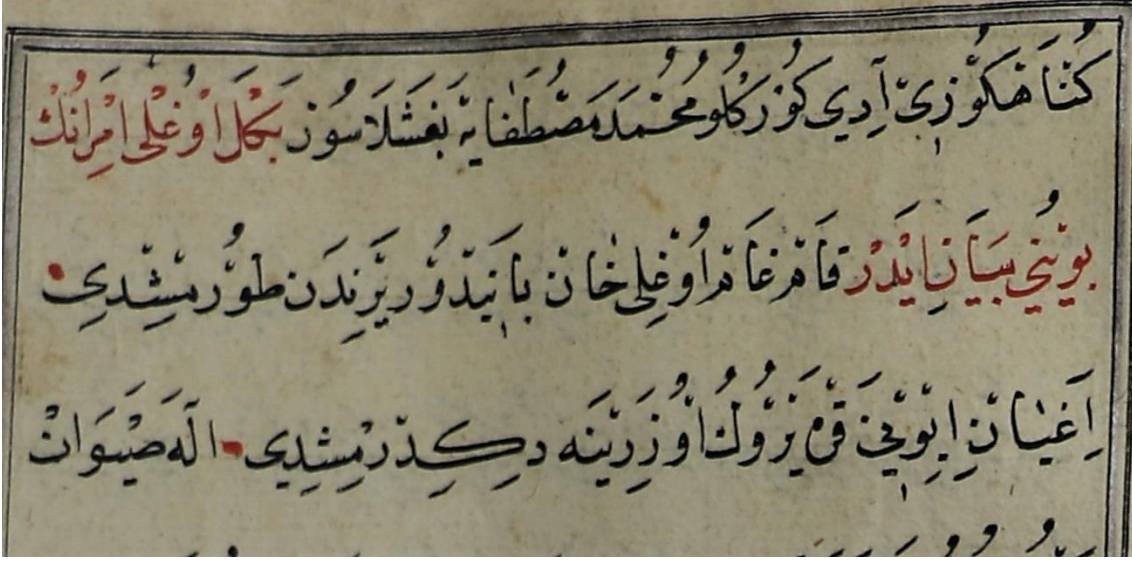 كُنَاهكُوزِىٓ آدِي كُوزكلو مُحَمَّد مُصْطَفايه بَغشلاسُون بَكِل اوُغْلى اَمرانُكْ
بويني بيان ايدر قام غام اوغلى خان بايندر يرندن طورمشدى
اغ بان ايوني قره يرك اوزرينه دكدرمشدي اله صيوان